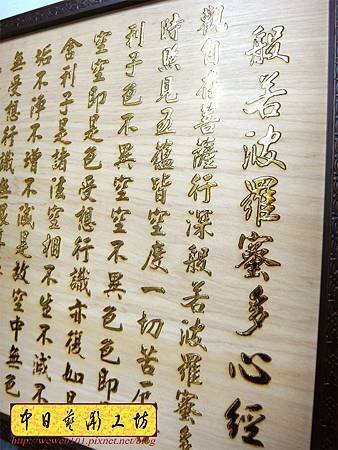 般若波羅蜜多心經
觀自在菩薩行深般若波羅蜜多
時照見五蘊皆空度一切苦厄
利子色不異空空不異色色即
空空即是色受想行識亦復如是
舍利子是諸法空相不生不滅不
垢不淨不增不減是故空中無色
無受想行識無
中日藝術工坊
http://wewei101.pixnet.net/blog